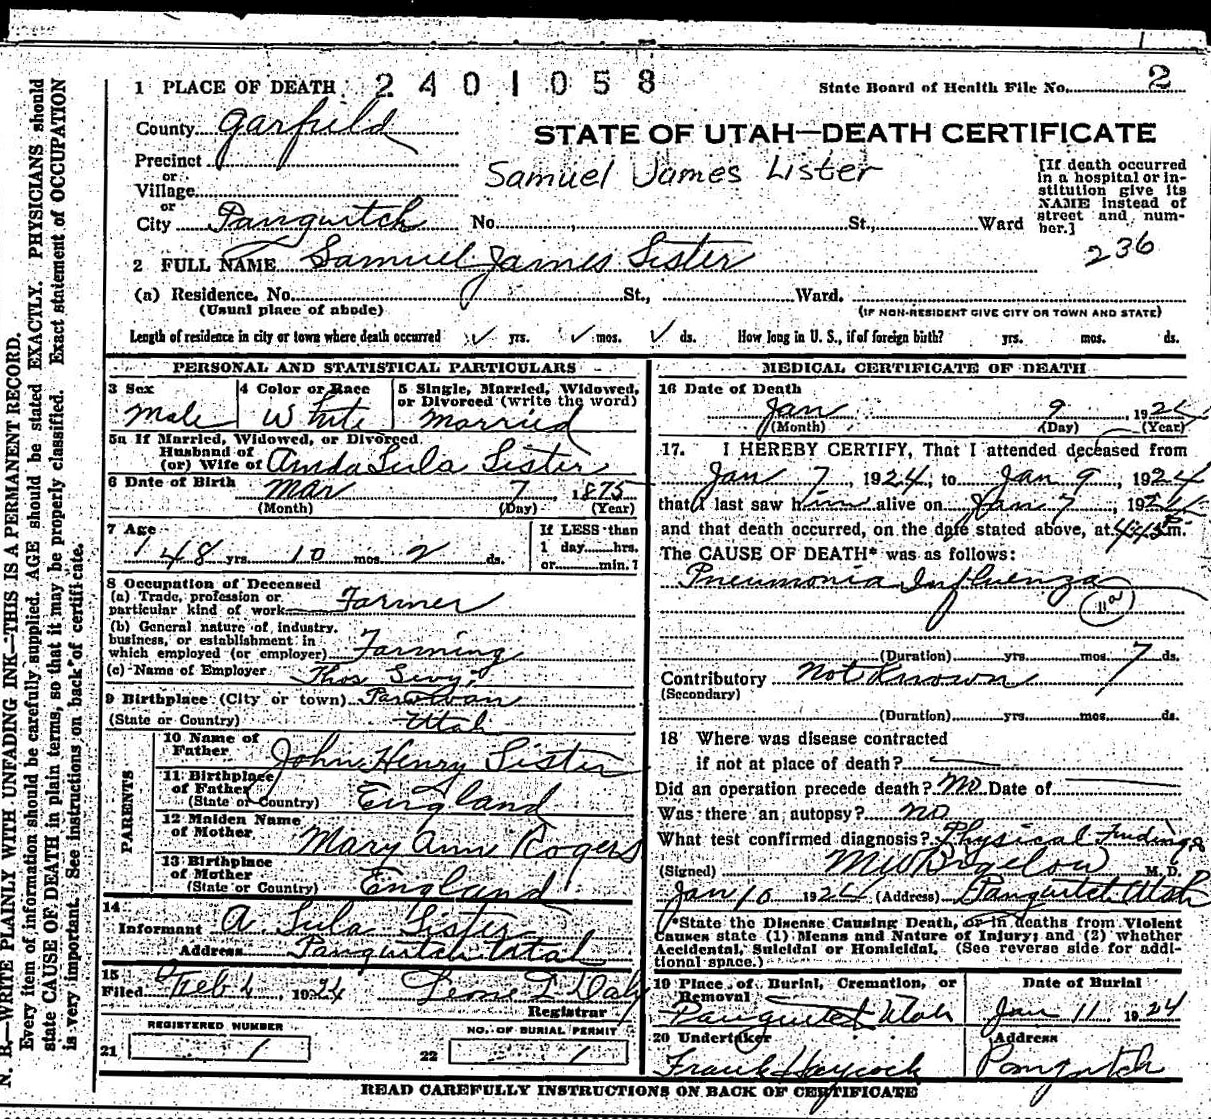 1 PLACE OF DEATH 2401058 State Board of Health File No. 2
County Garfield
STATE OF UTAH—DEATH CERTIFICATE
Precinct
or
Village
Samuel James Lister
[If death occurred in a hospital or in-
stitution give its
NAME instead of
street and num-
ber.]
or
City Panguitch No. St., Ward
236
2 FULL NAME Samuel James Lister
(a) Residence. No. St., Ward.
(Usual place of abode) (IF NON-RESIDENT GIVE CITY OR TOWN AND STATE)
Length of residence in city or town where death occurred ✓ yrs. ✓ mos. ✓ ds. How long in U. S., if of foreign birth? yrs. mos. ds.
PERSONAL AND STATISTICAL PARTICULARS
3 Sex
Male
4 Color or Race
White
5 Single, Married, Widowed,
or Divorced (write the word)
Married
5a If Married, Widowed, or Divorced
Husband of
(or) Wife of Lula Lister
6 Date of Birth Mar 7, 1875
(Month) (Day) (Year)
7 Age
48 yrs. 10 mos. 2 ds.
If LESS than
1 day hrs.
or min.?
8 Occupation of Deceased
(a) Trade, profession or
particular kind of work Farmer
(b) General nature of industry,
business, or establishment in
which employed (or employer) Farming
(c) Name of Employer Thos Sevy
9 Birthplace (City or town) Parowan
(State or Country) Utah
PARENTS
10 Name of
Father John Henry Lister
11 Birthplace
of Father
(State or Country) England
12 Maiden Name
of Mother Mary Ann Rogers
13 Birthplace
of Mother
(State or Country) England
14
Informant A Lula Lister
Address Panguitch Utah
15
Filed Feb 4, 1924
Registrar
REGISTERED NUMBER
21 1
NO. OF BURIAL PERMIT
22 1
MEDICAL CERTIFICATE OF DEATH
16 Date of Death
Jan 9 1924
(Month) (Day) (Year)
17. I HEREBY CERTIFY, That I attended deceased from
Jan 7, 1924, to Jan 9, 1924
that I last saw him alive on Jan 7, 1924
and that death occurred, on the date stated above, at m.
The CAUSE OF DEATH* was as follows:
Pneumonia Influenza
11a
(Duration) yrs. mos. 7 ds.
Contributory Not Known
(Secondary)
(Duration) yrs. mos. ds.
18 Where was disease contracted
if not at place of death?
Did an operation precede death? No Date of
Was there an autopsy? no
What test confirmed diagnosis? Physical Findings
(Signed) Bigelow M. D.
Jan 10 1924 (Address) Panguitch Utah
*State the Disease Causing Death, or in deaths from Violent
Causes state (1) Means and Nature of Injury; and (2) whether
Accidental, Suicidal or Homicidal. (See reverse side for addi-
tional space.)
19 Place of Burial, Cremation, or
Removal
Panguitch Utah
Date of Burial
Jan 11 1924
20 Undertaker
Frank Haycock
Address
Panguitch
READ CAREFULLY INSTRUCTIONS ON BACK OF CERTIFICATE
N. B.—WRITE PLAINLY WITH UNFADING INK—THIS IS A PERMANENT RECORD.
Every item of information should be carefully supplied. AGE should be stated EXACTLY. PHYSICIANS should
state CAUSE OF DEATH in plain terms, so that it may be properly classified. Exact statement of OCCUPATION
is very important. See instructions on back of certificate.